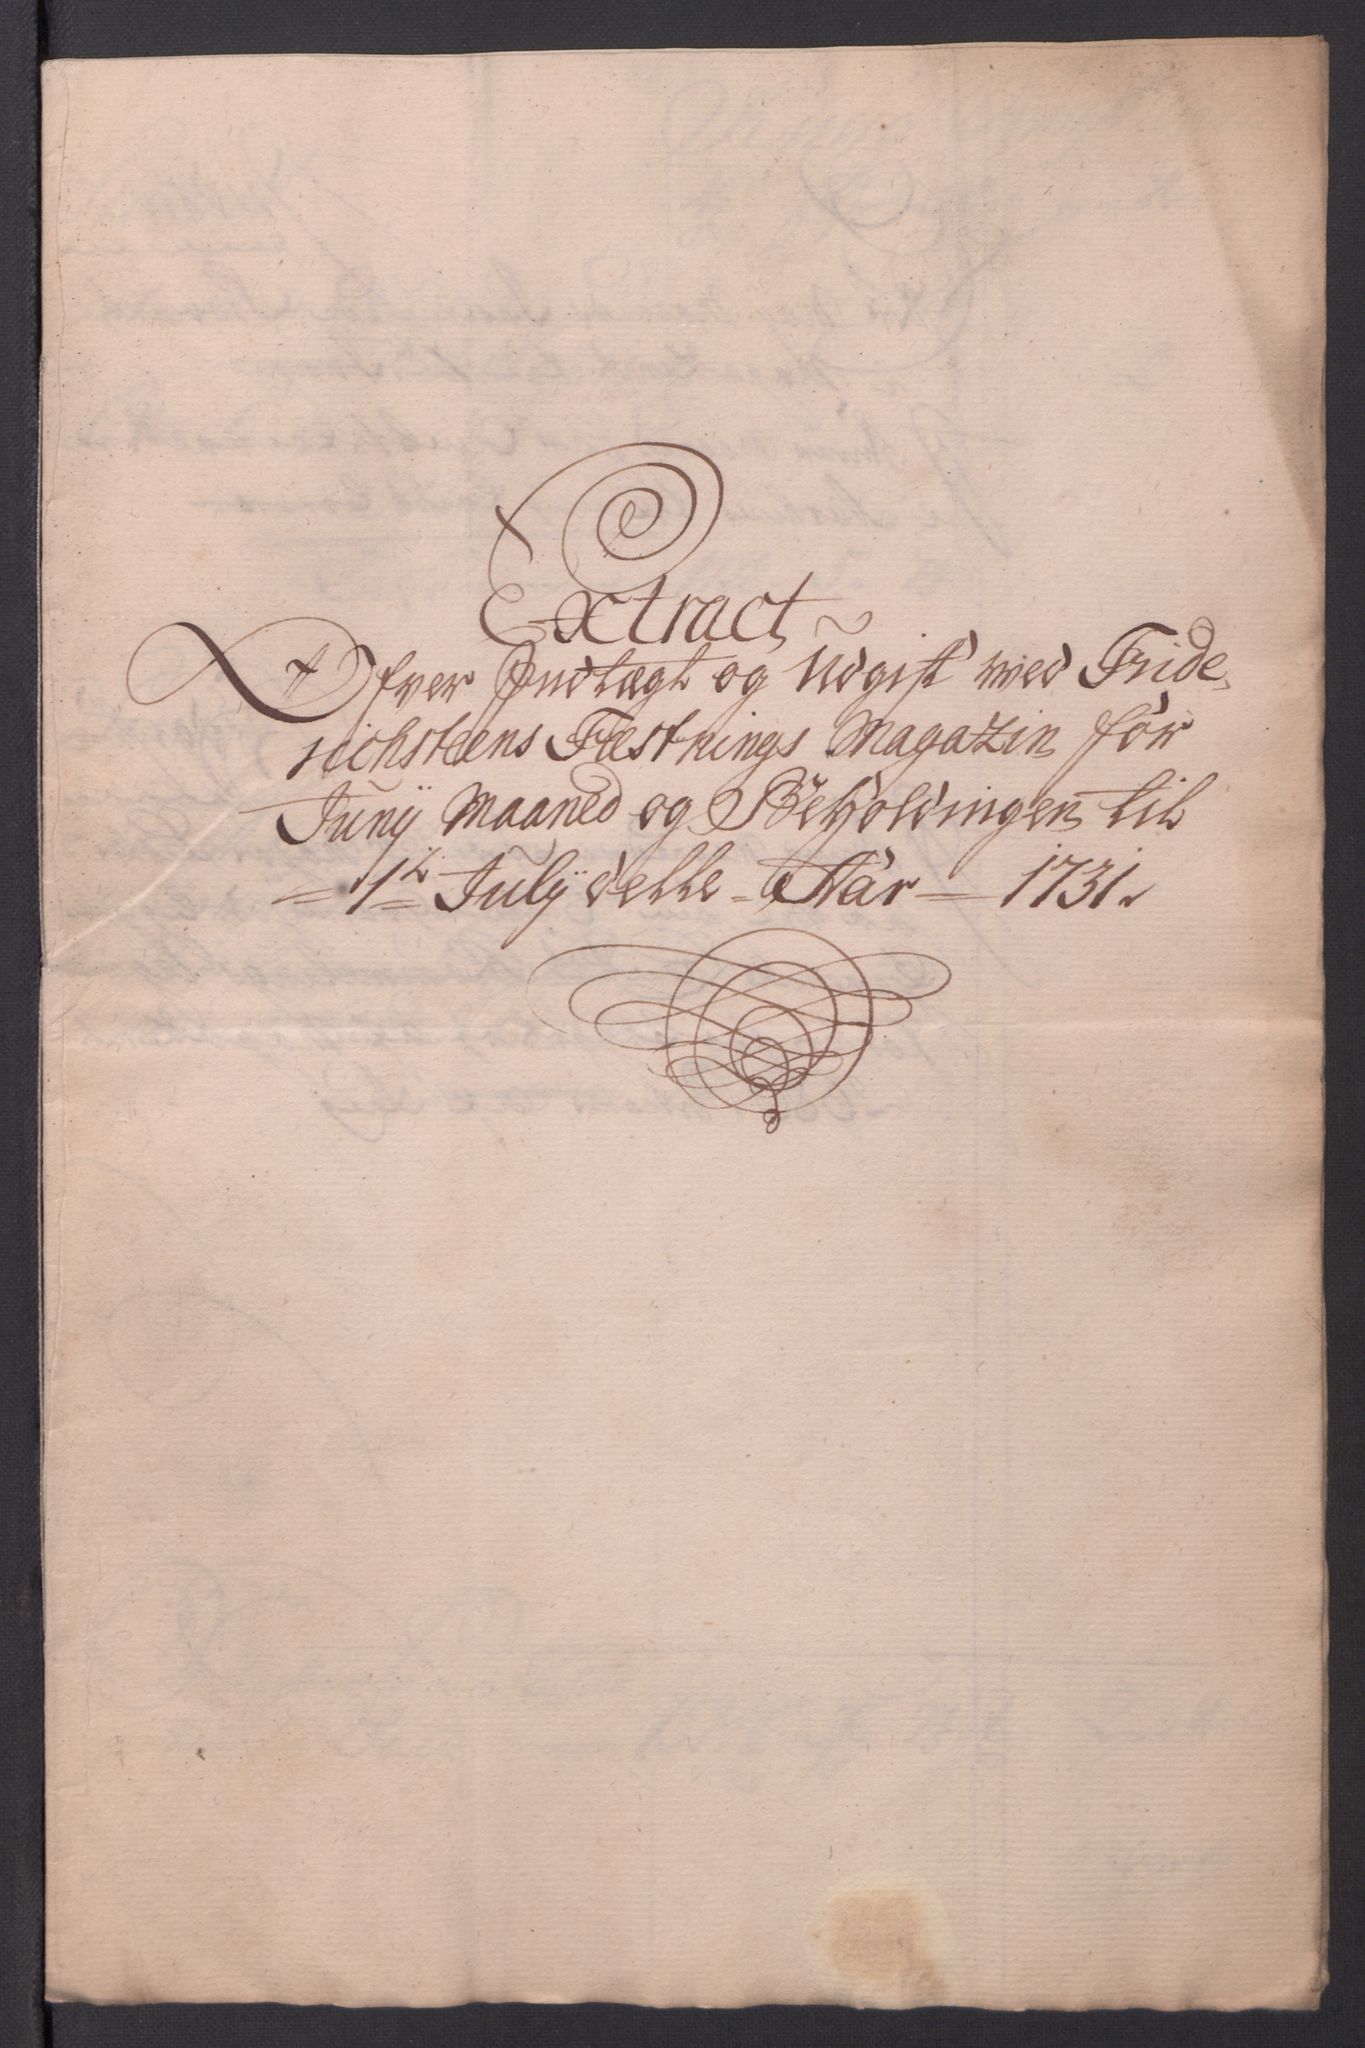 Extract
Ofver Indtægt og Udgift med Fride-
richsteens Fæstnings Magazin for
Junij Maaned og Beholdingen til
1te Julij dette Aar 1731.